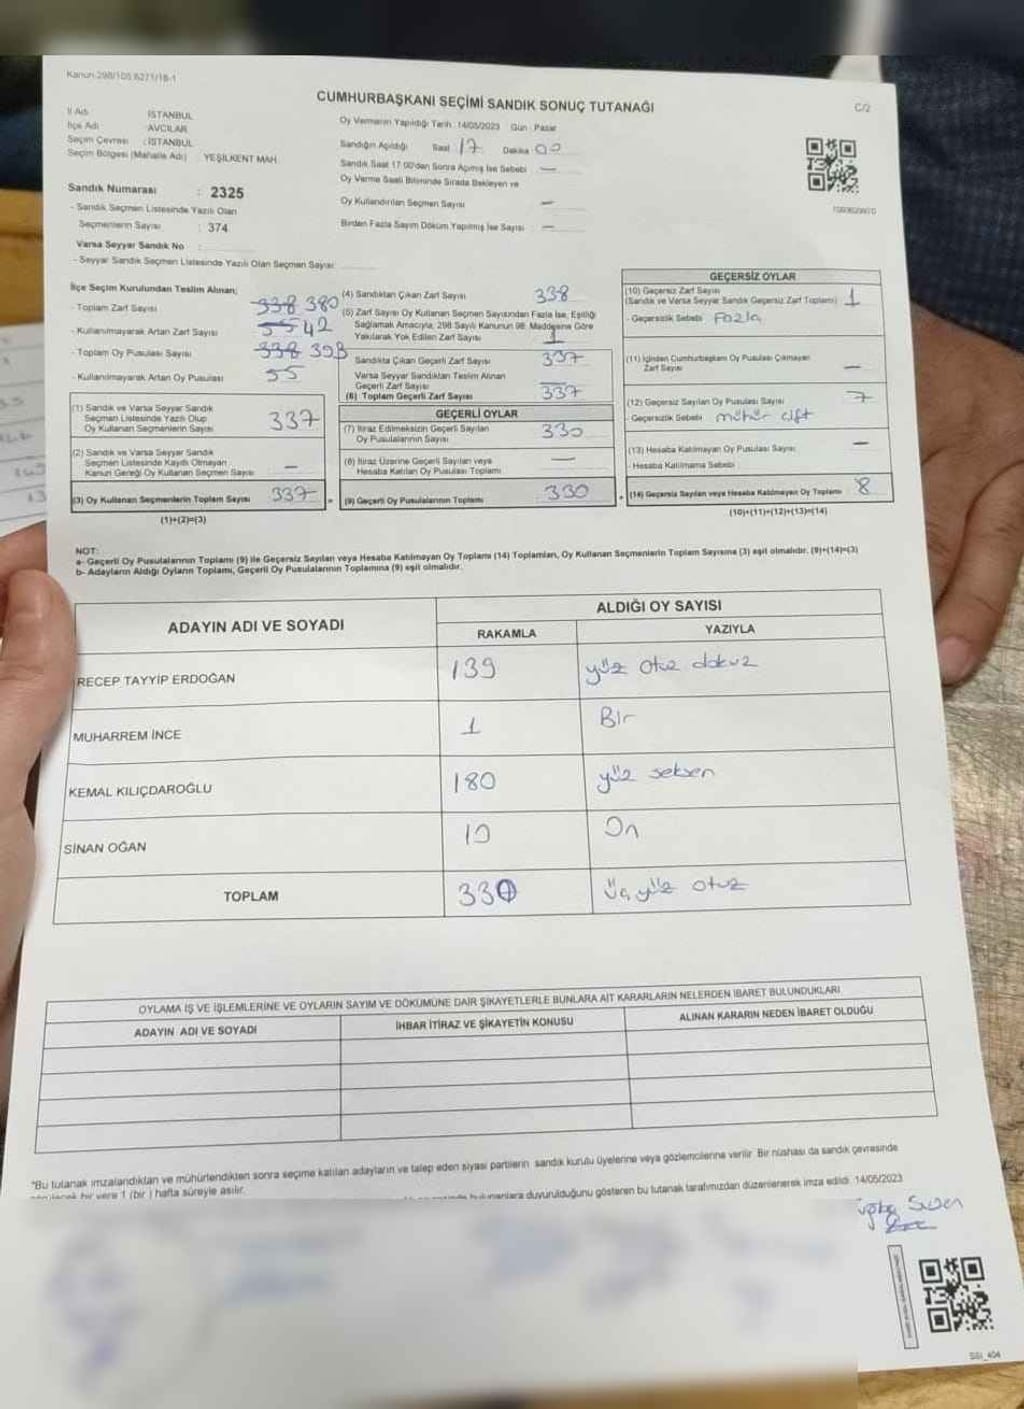 Kanun 298/105 6271/18-1
CUMHURBAŞKANI SEÇİMİ SANDIK SONUÇ TUTANAĞI
C/2
İl Adı İSTANBUL
İlçe Adı AVCILAR
Seçim Çevresi : İSTANBUL
Seçim Bölgesi (Mahalle Adı) : YEŞİLKENT MAH.
Oy Vermenin Yapıldığı Tarih :14/05/2023 Gün : Pazar
Sandığın Açıldığı Saat 17 Dakika 00
Sandık Saat 17:00'den Sonra Açılmış İse Sebebi —
Oy Verme Saati Bitiminde Sırada Bekleyen ve
Oy Kullandırılan Seçmen Sayısı —
Birden Fazla Sayım Döküm Yapılmış İse Sayısı —
Sandık Numarası : 2325
- Sandık Seçmen Listesinde Yazılı Olan
Seçmenlerin Sayısı : 374
Varsa Seyyar Sandık No :
- Seyyar Sandık Seçmen Listesinde Yazılı Olan Seçmen Sayısı:
İlçe Seçim Kurulundan Teslim Alınan;
- Toplam Zarf Sayısı 338 380
- Kullanılmayarak Artan Zarf Sayısı 55 42
- Toplam Oy Pusulası Sayısı 338
- Kullanılmayarak Artan Oy Pusulası 55
(1) Sandık ve Varsa Seyyar Sandık
Seçmen Listesinde Yazılı Olup
Oy Kullanan Seçmenlerin Sayısı 337
(2) Sandık ve Varsa Seyyar Sandık
Seçmen Listesinde Kaydı Olmayan
Kanun Gereği Oy Kullanan Seçmen Sayısı —
(3) Oy Kullanan Seçmenlerin Toplam Sayısı 337
(1)+(2)=(3)
(4) Sandıktan Çıkan Zarf Sayısı 338
(5) Zarf Sayısı Oy Kullanan Seçmen Sayısından Fazla İse, Eşitliği
Sağlamak Amacıyla, 298 Sayılı Kanunun 98. Maddesine Göre
Yakılarak Yok Edilen Zarf Sayısı 1
Sandıkta Çıkan Geçerli Zarf Sayısı 337
Varsa Seyyar Sandıktan Teslim Alınan
Geçerli Zarf Sayısı —
(6) Toplam Geçerli Zarf Sayısı 337
GEÇERLİ OYLAR
(7) İtiraz Edilmeksizin Geçerli Sayılan
Oy Pusulalarının Sayısı 330
(8) İtiraz Üzerine Geçerli Sayılan veya
Hesaba Katılan Oy Pusulası Toplamı —
(9) Geçerli Oy Pusulalarının Toplamı 330
GEÇERSİZ OYLAR
(10) Geçersiz Zarf Sayısı
(Sandık ve Varsa Seyyar Sandık Geçersiz Zarf Toplamı) 1
- Geçersizlik Sebebi Fazla
(11) İçinden Cumhurbaşkanı Oy Pusulası Çıkmayan
Zarf Sayısı —
(12) Geçersiz Sayılan Oy Pusulası Sayısı 7
- Geçersizlik Sebebi mühür çift
(13) Hesaba Katılmayan Oy Pusulası Sayısı —
- Hesaba Katılmama Sebebi
(14) Geçersiz Sayılan veya Hesaba Katılmayan Oy Toplamı 8
(10)+(11)+(12)+(13)=(14)
NOT:
a- Geçerli Oy Pusulalarının Toplamı (9) ile Geçersiz Sayılan veya Hesaba Katılmayan Oy Toplamı (14) Toplamları, Oy Kullanan Seçmenlerin Toplam Sayısına (3) eşit olmalıdır. (9)+(14)=(3)
b- Adayların Aldığı Oyların Toplamı, Geçerli Oy Pusulalarının Toplamına (9) eşit olmalıdır.
ADAYIN ADI VE SOYADI
ALDIĞI OY SAYISI
RAKAMLA YAZIYLA
RECEP TAYYİP ERDOĞAN 139 yüz otuz dokuz
MUHARREM İNCE 1 Bir
KEMAL KILIÇDAROĞLU 180 yüz seksen
SİNAN OĞAN 10 On
TOPLAM 330 üç yüz otuz
OYLAMA İŞ VE İŞLEMLERİNE VE OYLARIN SAYIM VE DÖKÜMÜNE DAİR ŞİKAYETLERLE BUNLARA AİT KARARLARIN NELERDEN İBARET BULUNDUKLARI
ADAYIN ADI VE SOYADI İHBAR İTİRAZ VE ŞİKAYETİN KONUSU ALINAN KARARIN NEDEN İBARET OLDUĞU
"Bu tutanak imzalandıktan ve mühürlendikten sonra seçime katılan adayların ve talep eden siyasi partilerin sandık kurulu üyelerine veya gözlemcilerine verilir. Bir nüshası da sandık çevresinde
bir yere 1 (bir ) hafta süreyle asılır.
bulunanlara duyurulduğunu gösteren bu tutanak tarafımızdan düzenlenerek imza edildi. 14/05/2023